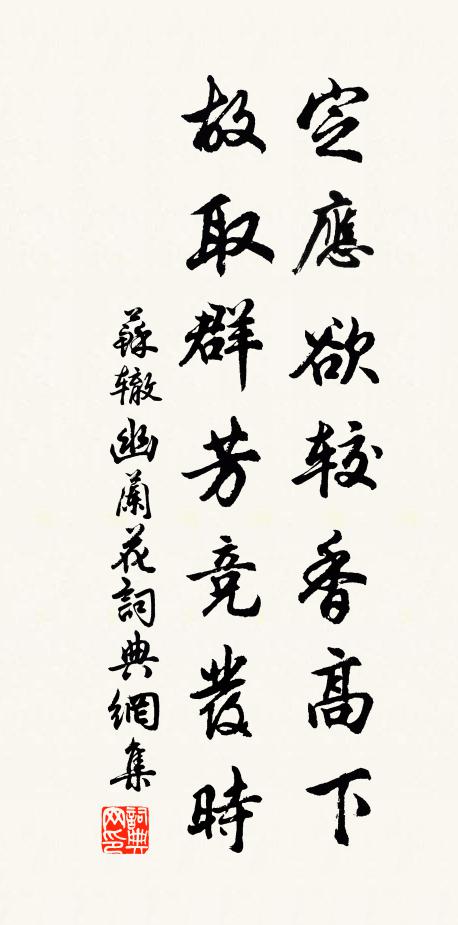 定應欲较香高下
故取群芳竞發時
蘇辙幽蘭花詞典網集
詞典网印